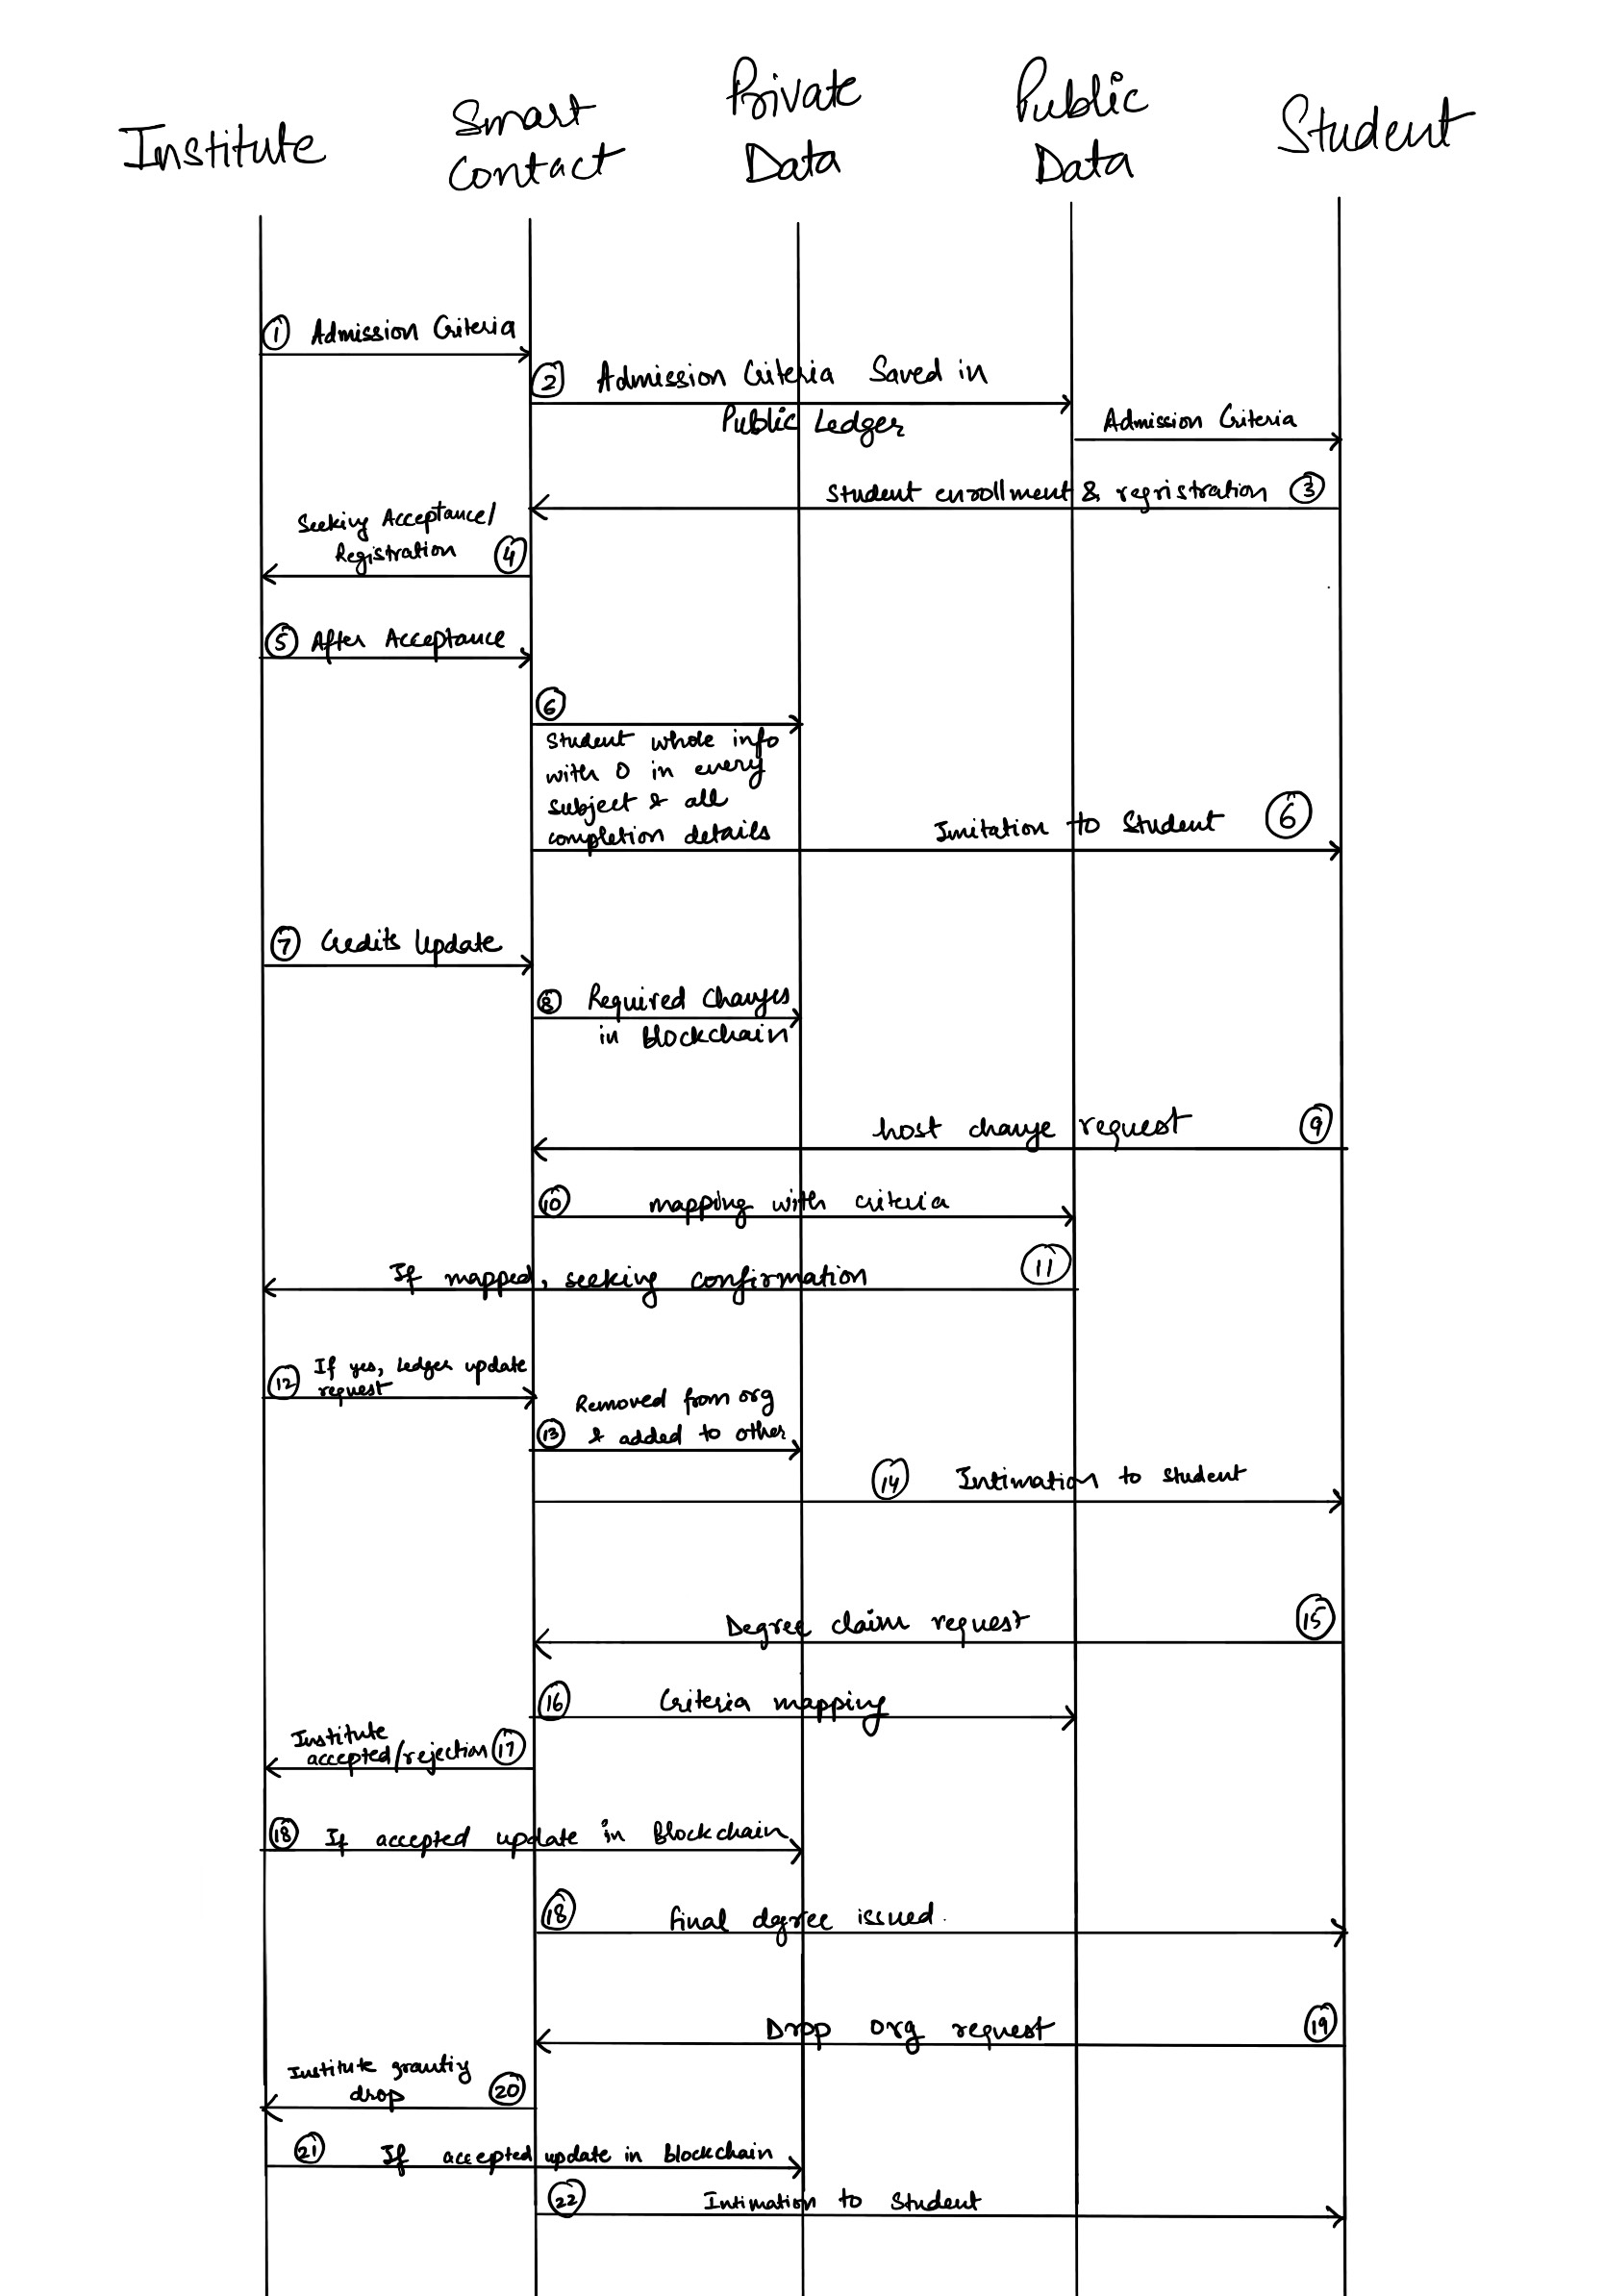 Institute
Smart
Contact
Private
Data
Public
Data
Student
① Admission Criteria
② Admission Criteria Saved in
Public Ledger
Admission Criteria
Student enrollment & regristration ③
Seeking Acceptance/
Registration ④
⑤ After Acceptance
⑥
Student whole info
with 0 in every
subject & all
completion details
Imitation to Student ⑥
⑦ Credits Update
⑧ Required Changes
in Blockchain
host change request ⑨
⑩ mapping with criteria
If mapped, seeking confirmation ⑪
⑫ If yes, Ledger update
request
Removed from org
⑬ & added to other
⑭ Intimation to student
Degree claim request ⑮
⑯ Criteria mapping
Institute
accepted/rejection ⑰
⑱ If accepted update in Blockchain
⑱ final degree issued.
Drop org request ⑲
Institute grantiy
drop ⑳
㉑ If accepted update in blockchain
㉒ Intimation to Student